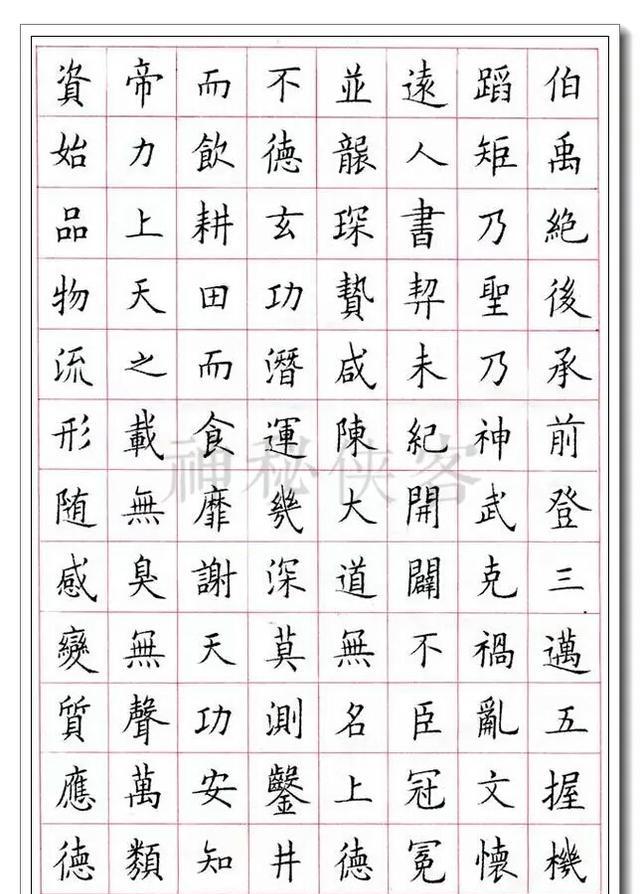 伯禹絶後承前登三邁五握機
蹈矩乃聖乃神武克禍亂文懷
遠人書契未紀開闢不臣冠冕
並襲琛贄咸陳大道無名上德
不德玄功潛運幾深莫測鑿井
而飲耕田而食靡謝天功安知
帝力上天之載無臭無聲萬類
資始品物流形随感變質應德
神秘侠客